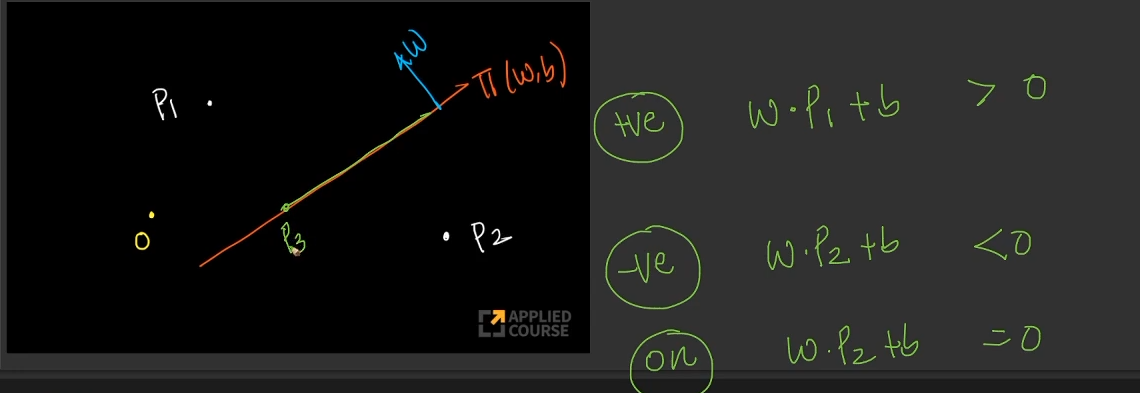 W
π(w,b)
P1
O
P3
P2
APPLIED
COURSE
+ve w·P1+b > 0
-ve w·P2+b < 0
on w·P2+b = 0